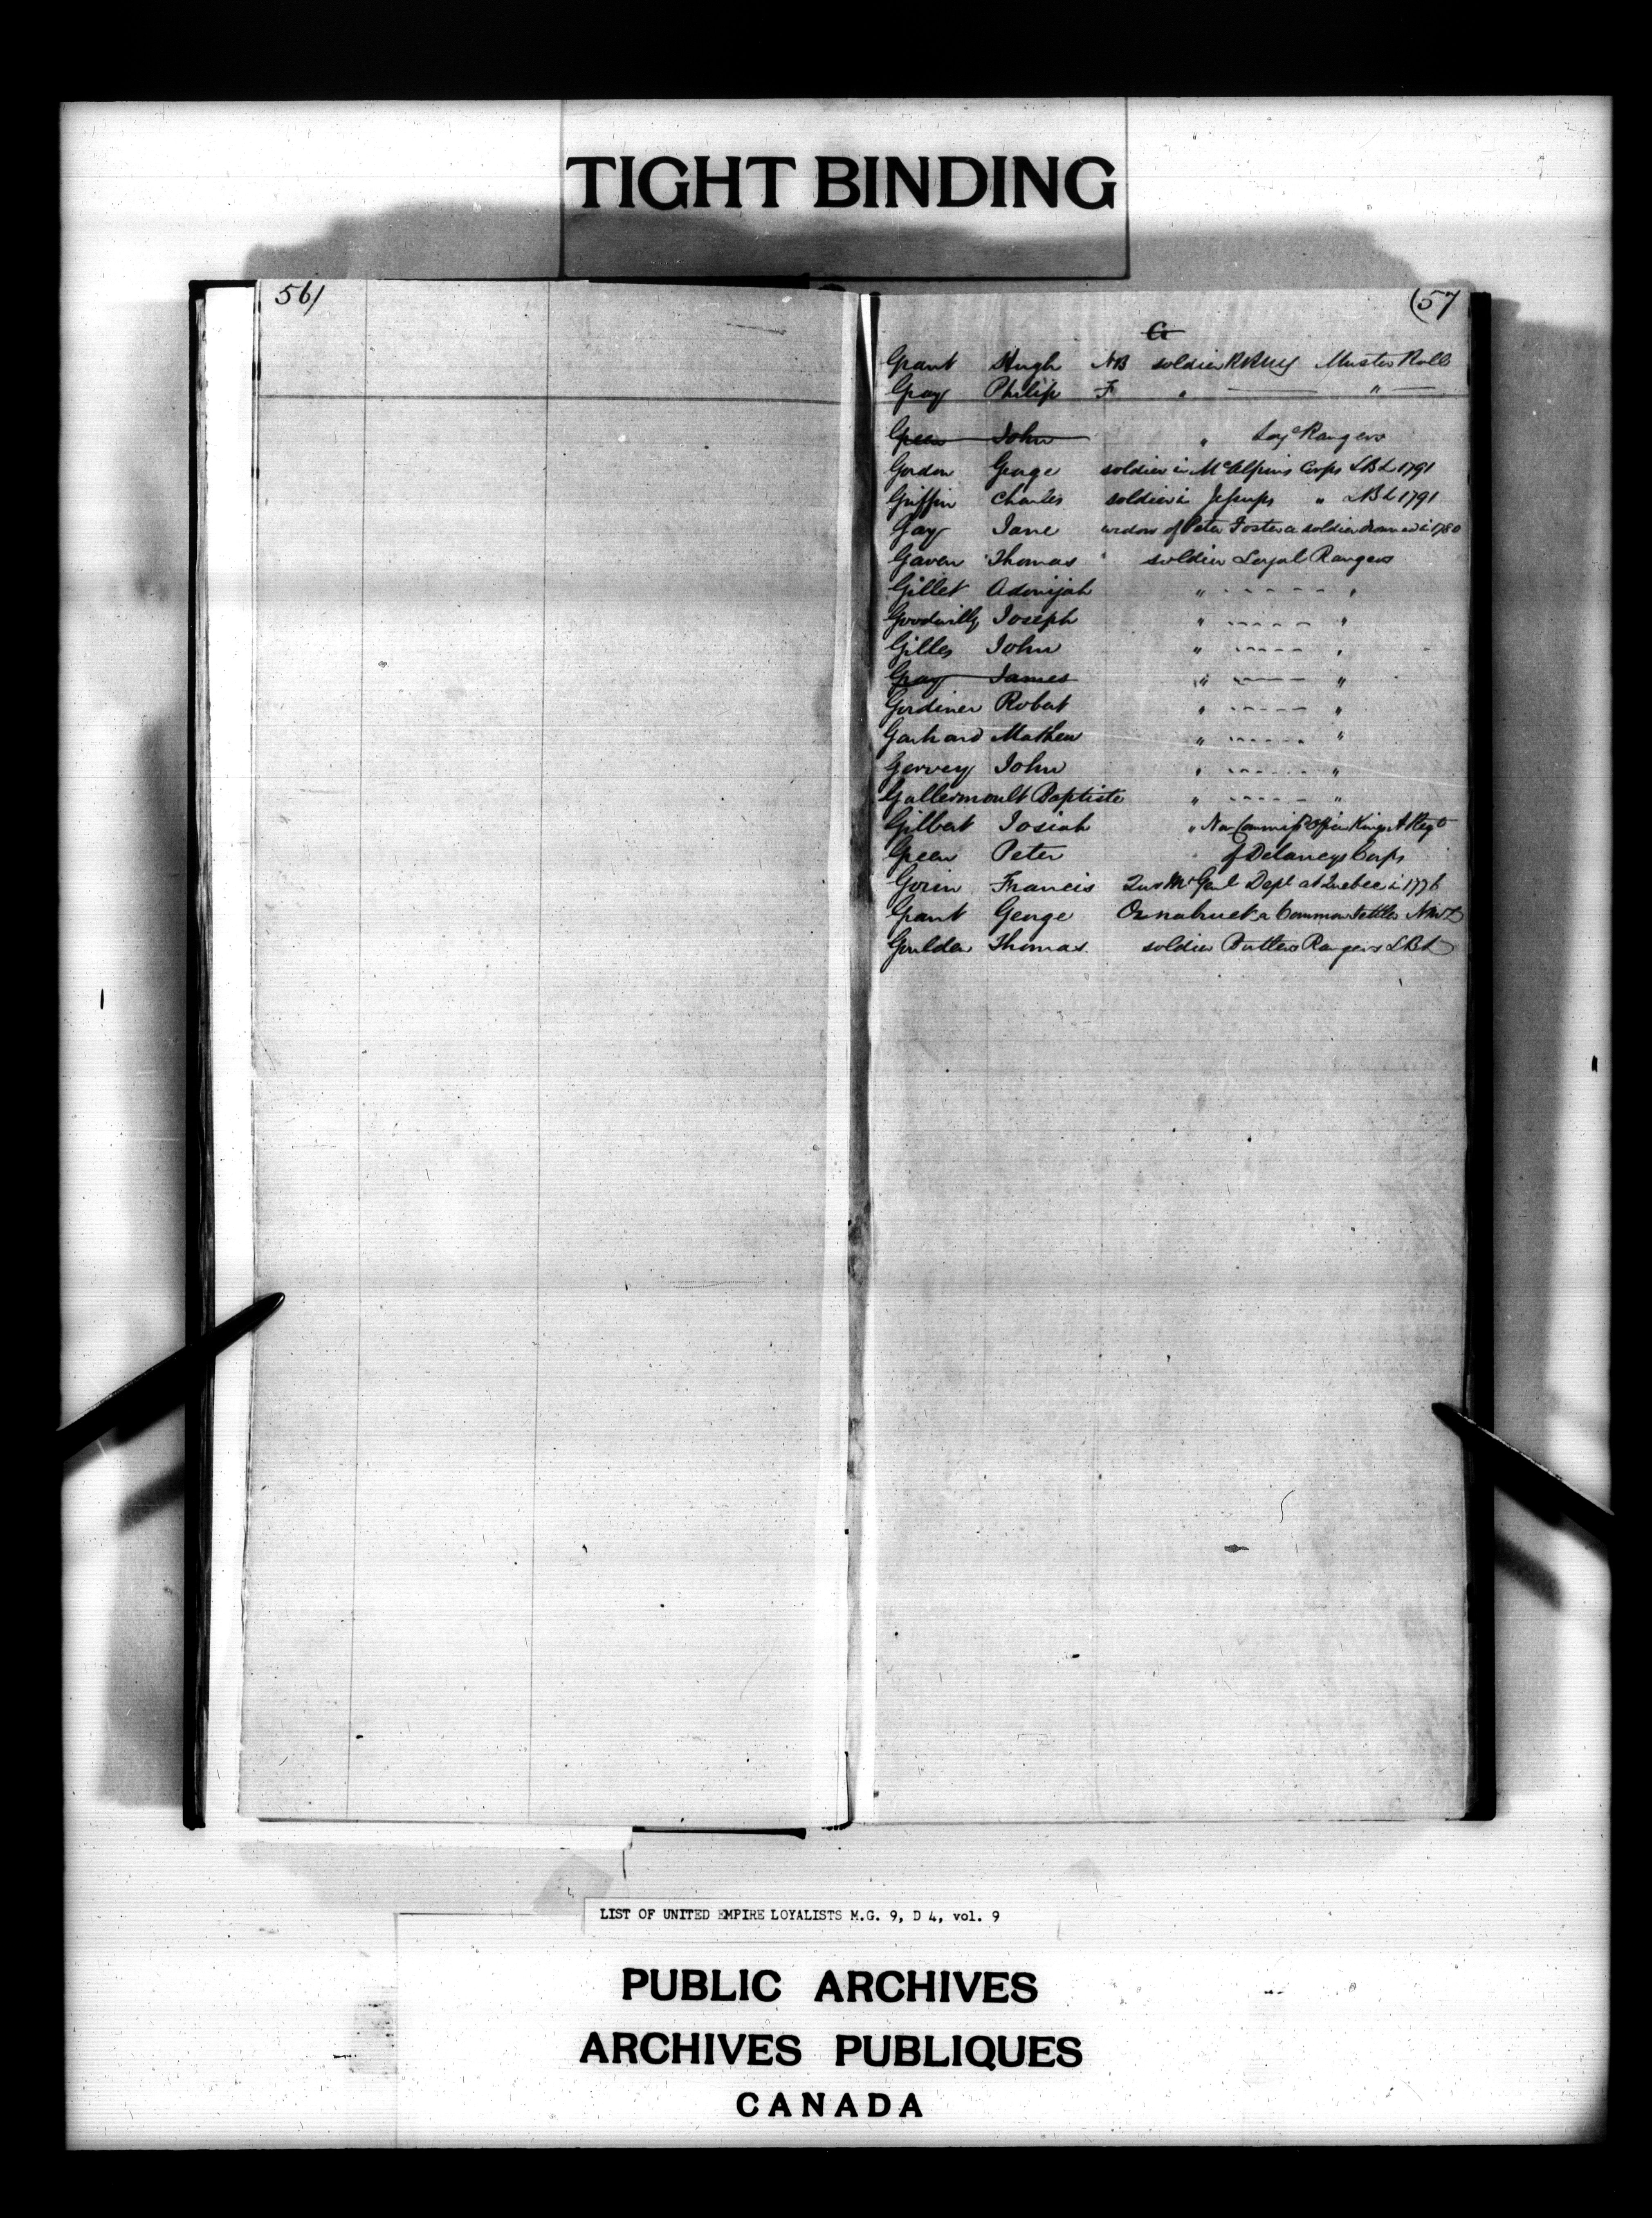 TIGHT BINDING
56)
(57
G
Grant Hugh NB soldier RRNY Muster Roll
Gray Philip F " "
Green John " Loyl Rangers
Gordon George soldier in McAlpins Corps LBL 1791
Griffin Charles soldier in Jessups " LBL 1791
Gay Jane widow of Peter Foster a soldier drowned in 1780
Gaven Thomas soldier Loyal Rangers
Gillet Adonijah " - - - - - "
Goodwilly Joseph " - - - - - "
Gilles John " - - - - - "
Gray James " - - - - - "
Gordiner Robert " - - - - - "
Mathew " - - - - - "
Gervey John " - - - - - "
Gallermoult Baptiste " - - - - - "
Gilbert Josiah " Non Commissd Officer Kings A Regt
Green Peter of Delanceys Corps
Gorin Francis Qur Mr Genl Dept at Quebec in 1776
Grant George Osnabruck a Common Settler
Goulder Thomas soldier Butlers Rangers LBL
LIST OF UNITED EMPIRE LOYALISTS M.G. 9, D 4, vol. 9
PUBLIC ARCHIVES
ARCHIVES PUBLIQUES
CANADA